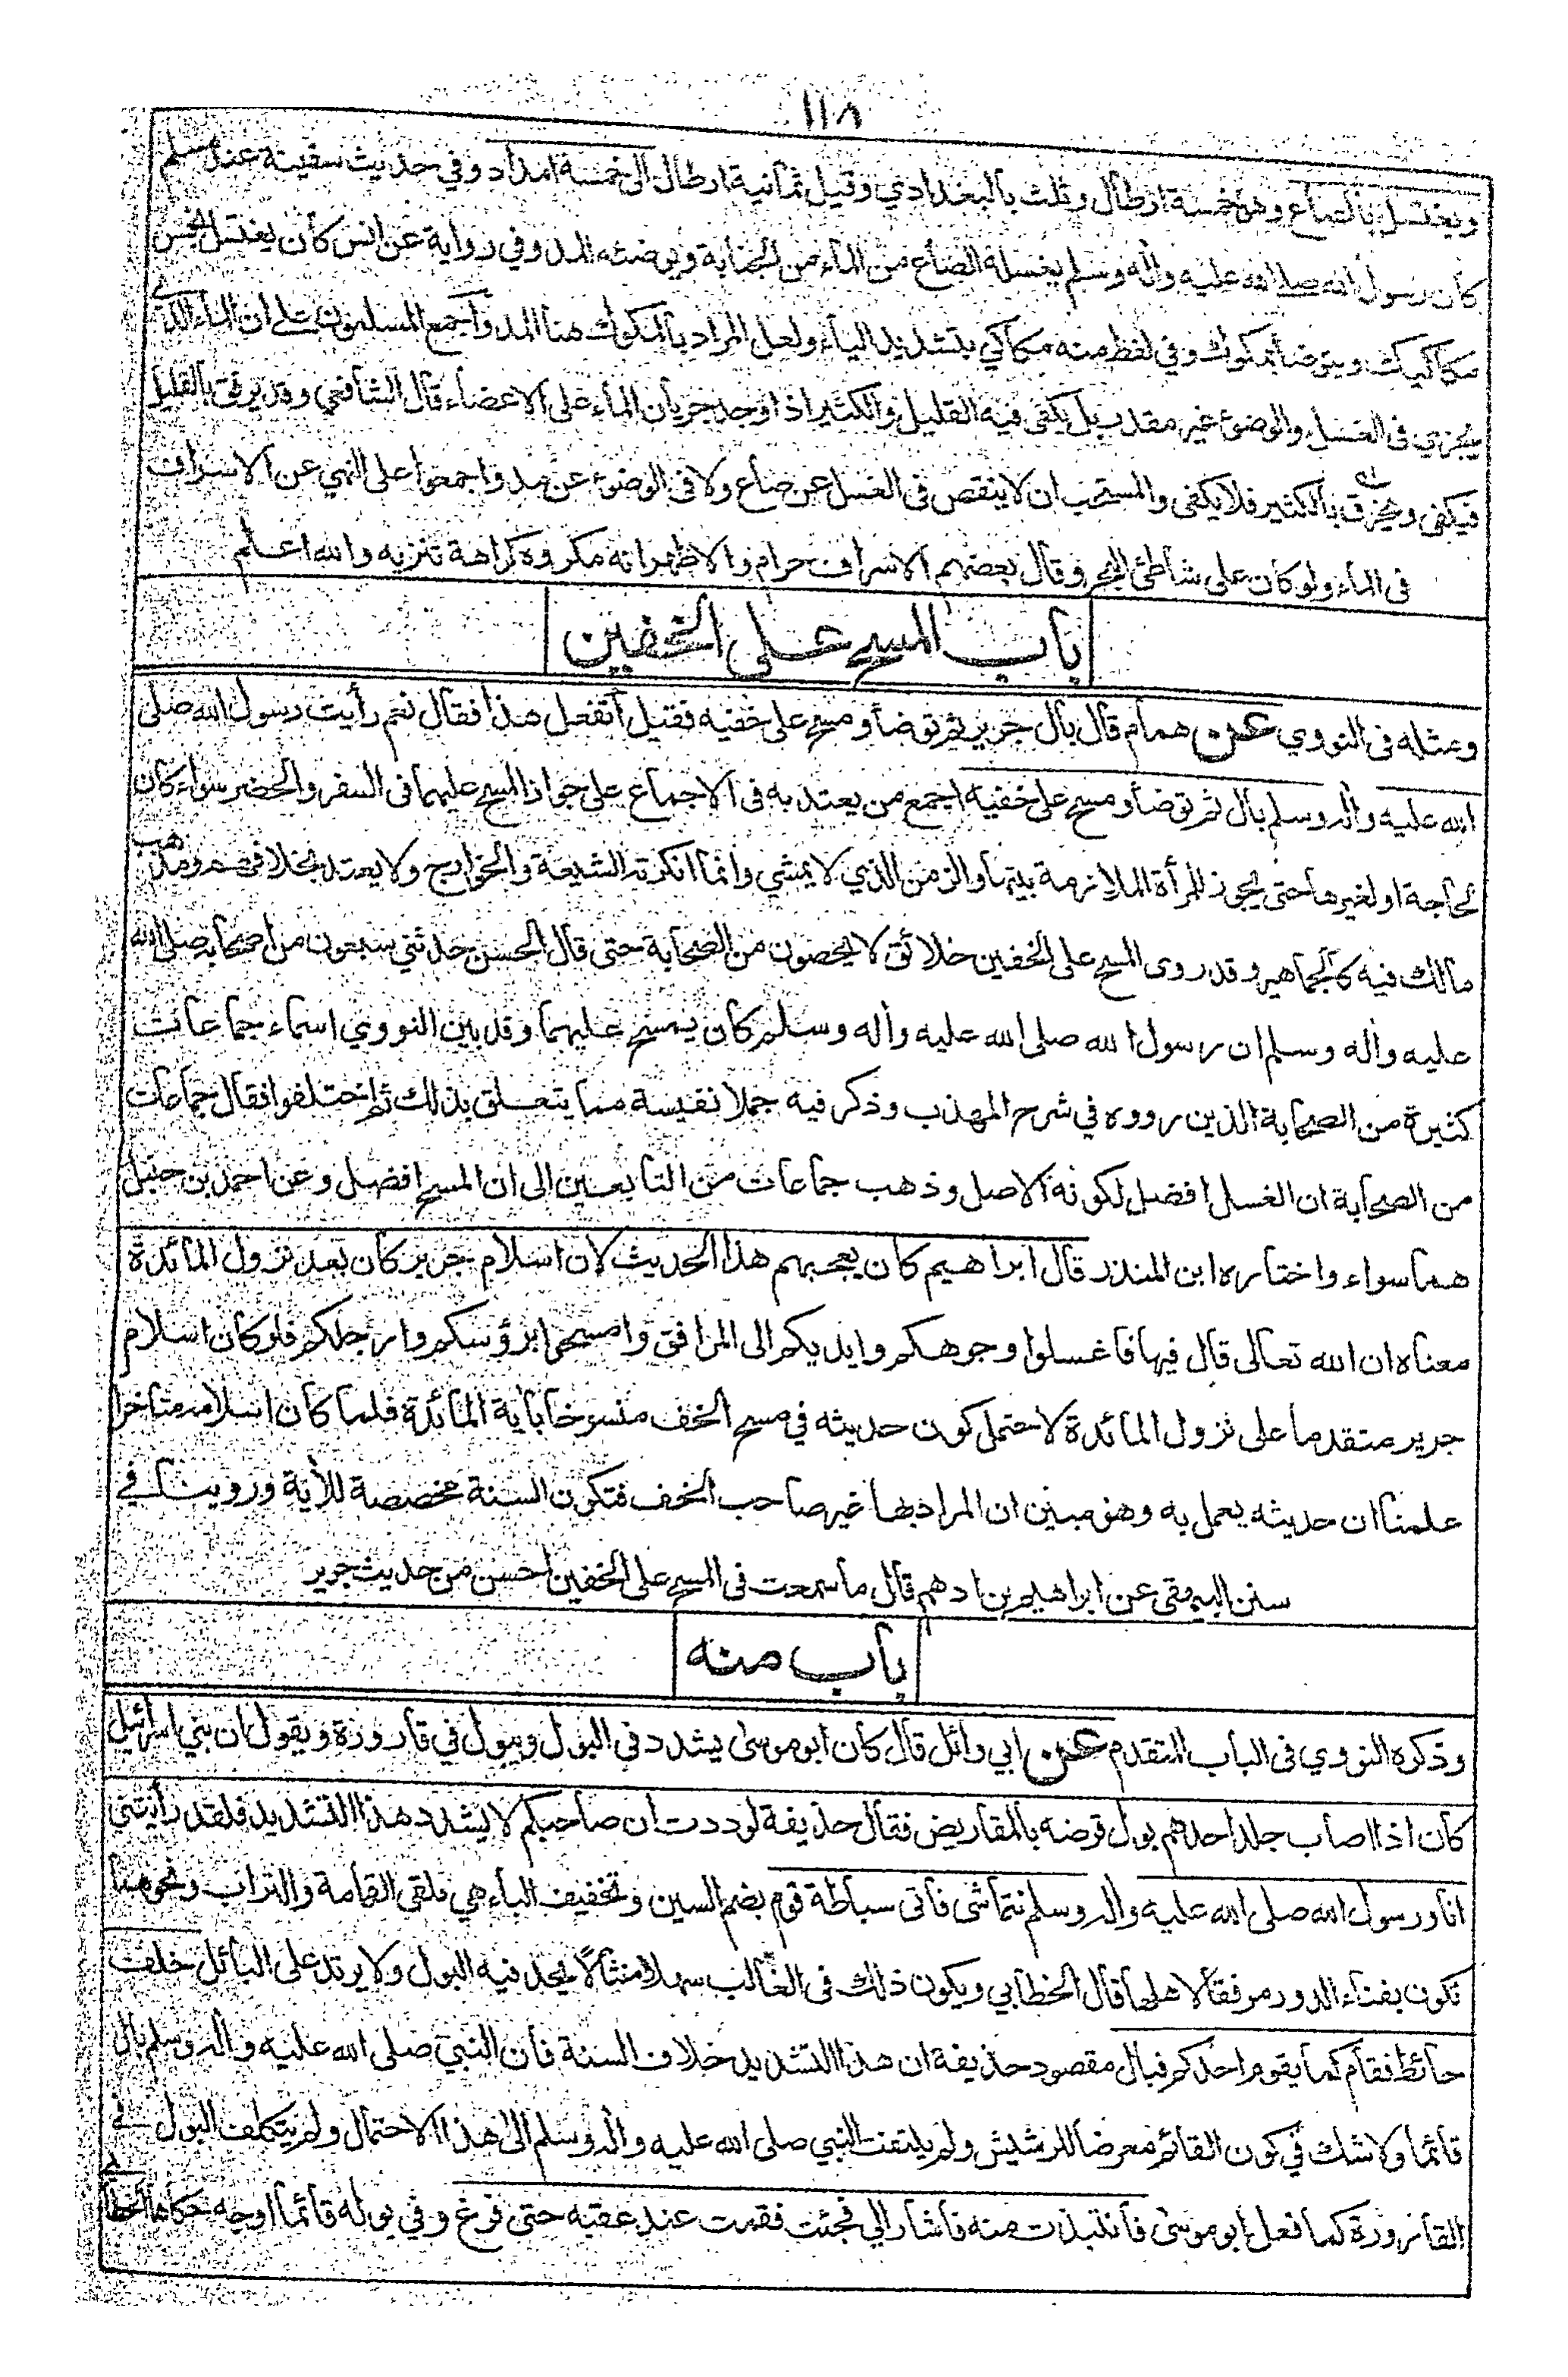 ١١٨
ويغتسل بالصاع وهو خمسة ارطال وثلث بالبغدادي وقيل ثمانية ارطال الى خمسة امداد وفي حديث سفينة عند مسلم
كان رسول الله صلى الله عليه واله وسلم يغسله الصاع من الماء من الجنابة ويوضئه المد وفي رواية عن انس كان يغتسل بخمس
مكاكيك ويتوضأ بمكوك وفي لفظ منه مكاكي بتشديد الياء ولعل المراد بالمكوك هنا المد واجمع المسلمون على ان الماء الذي
يجزي فى الغسل والوضوء غير مقدر بل يكفى فيه القليل والكثير اذا وجد جريان الماء على الاعضاء قال الشافعي وقد يرفق بالقليل
فيكفى ويخرق بالكثير فلا يكفى والمستحب ان لا ينقص فى الغسل عن صاع ولا فى الوضوء عن مد واجمعوا على النهي عن الاسراف
فى الماء ولو كان على شاطئ البحر وقال بعضهم الاسراف حرام والاظهر انه مكروه كراهة تنزيه والله اعلم
باب المسح على الخفين
ومثله فى النووي عن همام قال بال جرير ثم توضأ ومسح على خفيه فقيل أتفعل هذا فقال نعم رأيت رسول الله صلى
الله عليه واله وسلم بال ثم توضأ ومسح على خفيه اجمع من يعتد به فى الاجماع على جواز المسح عليهما فى السفر والحضر سواء كان
لحاجة او لغيرها حتى يجوز للمرأة الملازمة بيتها والزمن الذي لا يمشي وانما انكرته الشيعة والخوارج ولا يعتد بخلافهم ومذهب
مالك فيه كالجماهير وقد روى المسح على الخفين خلائق لا يحصون من الصحابة حتى قال الحسن حدثني سبعون من اصحابه صلى الله
عليه واله وسلم ان رسول الله صلى الله عليه واله وسلم كان يمسح عليهما وقد بين النووي اسماء جماعات
كثيرة من الصحابة الذين رووه في شرح المهذب وذكر فيه جملا نفيسة مما يتعلق بذلك ثم اختلفوا فقال جماعات
من الصحابة ان الغسل افضل لكونه الاصل وذهب جماعات من التابعين الى ان المسح افضل وعن احمد بن حنبل
هما سواء واختاره ابن المنذر قال ابراهيم كان يعجبهم هذا الحديث لان اسلام جرير كان بعد نزول المائدة
معناه ان الله تعالى قال فيها فاغسلوا وجوهكم وايديكم الى المرافق وامسحوا برؤسكم وارجلكم فلو كان اسلام
جرير متقدما على نزول المائدة لاحتمل كون حديثه في مسح الخف منسوخا باية المائدة فلما كان اسلامه متأخرا
علمنا ان حديثه يعمل به وهو مبين ان المراد بها غير صاحب الخف فتكون السنة مخصصة للأية وروينا في
سنن البيهقى عن ابراهيم بن ادهم قال ما سمعت فى المسح على الخفين احسن من حديث جرير
باب منه
وذكره النووي فى الباب المتقدم عن ابي وائل قال كان ابو موسى يشدد في البول ويبول في قارورة ويقول ان بني اسرائيل
كان اذا اصاب جلد احدهم بول قرضه بالمقاريض فقال حذيفة لوددت ان صاحبكم لا يشدد هذا التشديد فلقد رأيتني
انا ورسول الله صلى الله عليه واله وسلم نتماشى فأتى سباطة قوم بضم السين وتخفيف الباء هي ملقى القمامة والتراب ونحوهما
تكون بفناء الدور مرفقا لاهلها قال الخطابي ويكون ذلك فى الغالب سهلا منثالا يخد فيه البول ولا يرتد على البائل خلف
حائط فقام كما يقوم احدكم فبال مقصود حذيفة ان هذا التشديد خلاف السنة فان النبي صلى الله عليه واله وسلم بال
قائما ولا شك في كون القائم معرضا للرشيش ولم يلتفت النبي صلى الله عليه واله وسلم الى هذا الاحتمال ولم يتكلف البول في
القارورة كما فعل ابو موسى فانتبذت منه فاشار الي فجئت فقمت عند عقبه حتى فرغ وفي بوله قائما اوجه حكاها الخطابي